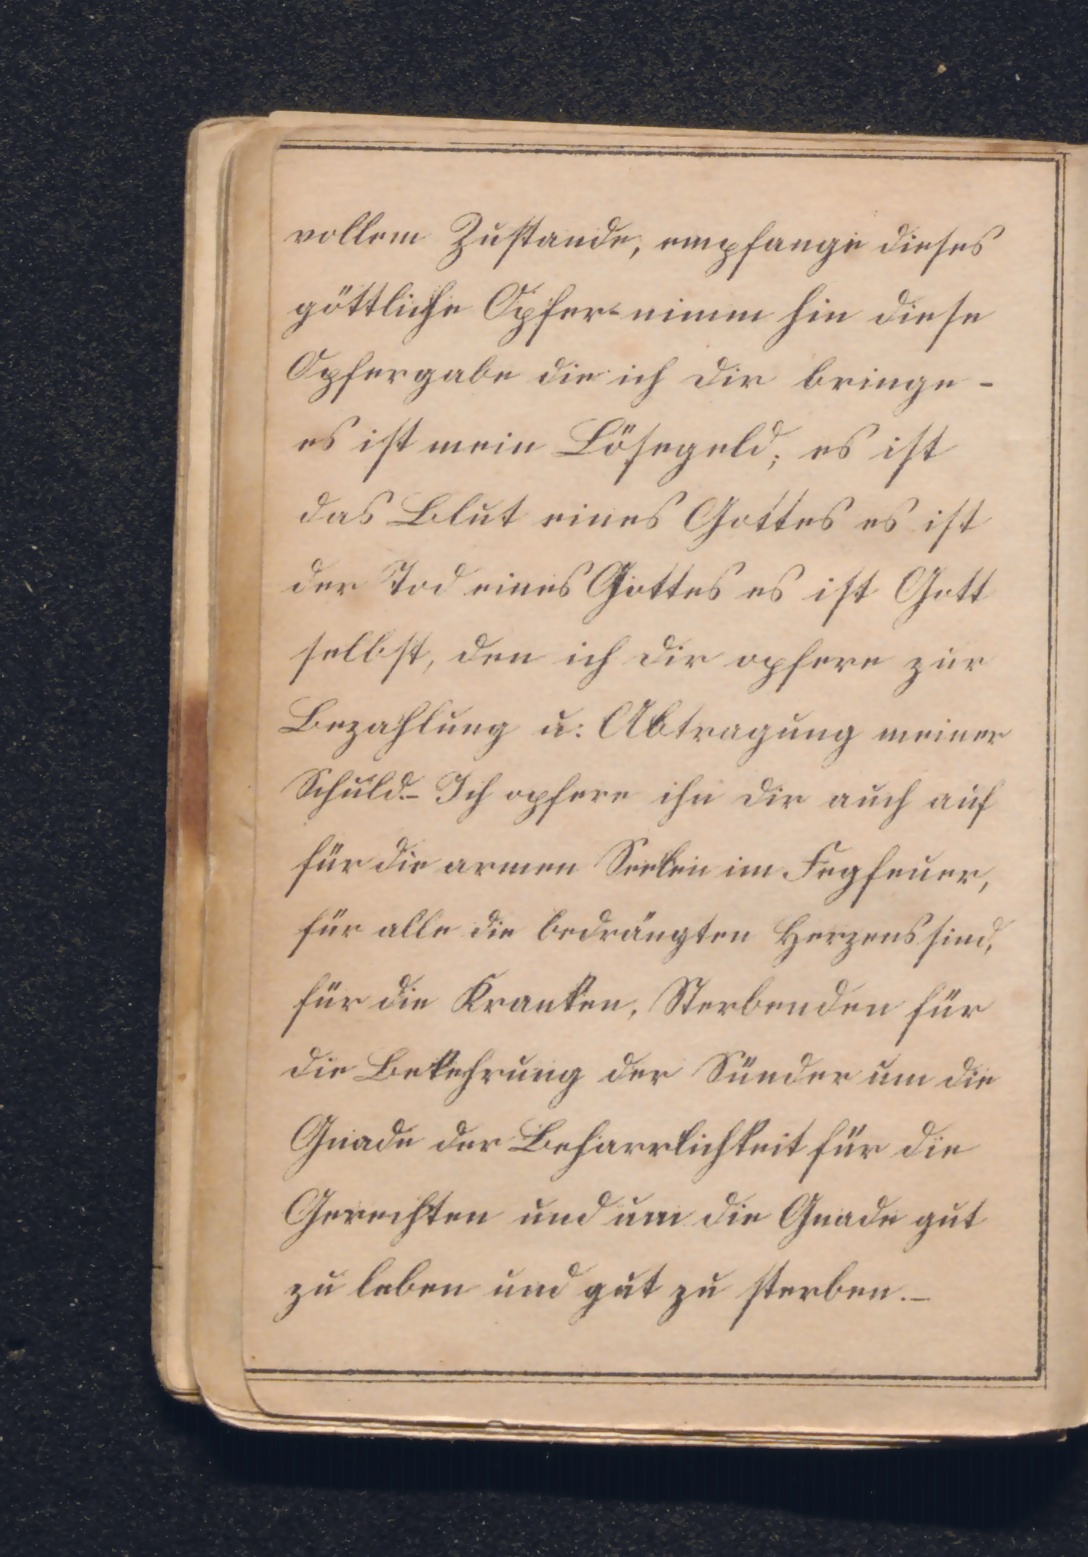 vollem Zustande, empfange dieses
göttliche Opfer - nimm hin diese
Opfergabe die ich dir bringe -
es ist mein Lösegeld; es ist
das Blut eines Gottes es ist
der Tod eines Gottes es ist Gott
selbst, den ich dir opfere zur
Bezahlung u: Abtragung meiner
Schuld.- Ich opfere ihn dir auch auf
für die armen Seelen im Fegfeuer,
für alle die bedrängten Herzens sind,
für die Kranken, Sterbenden für
die Bekehrung der Sünder um die
Gnade der Beharrlichkeit für die
Gerechten und um die Gnade gut
zu leben und gut zu sterben.-